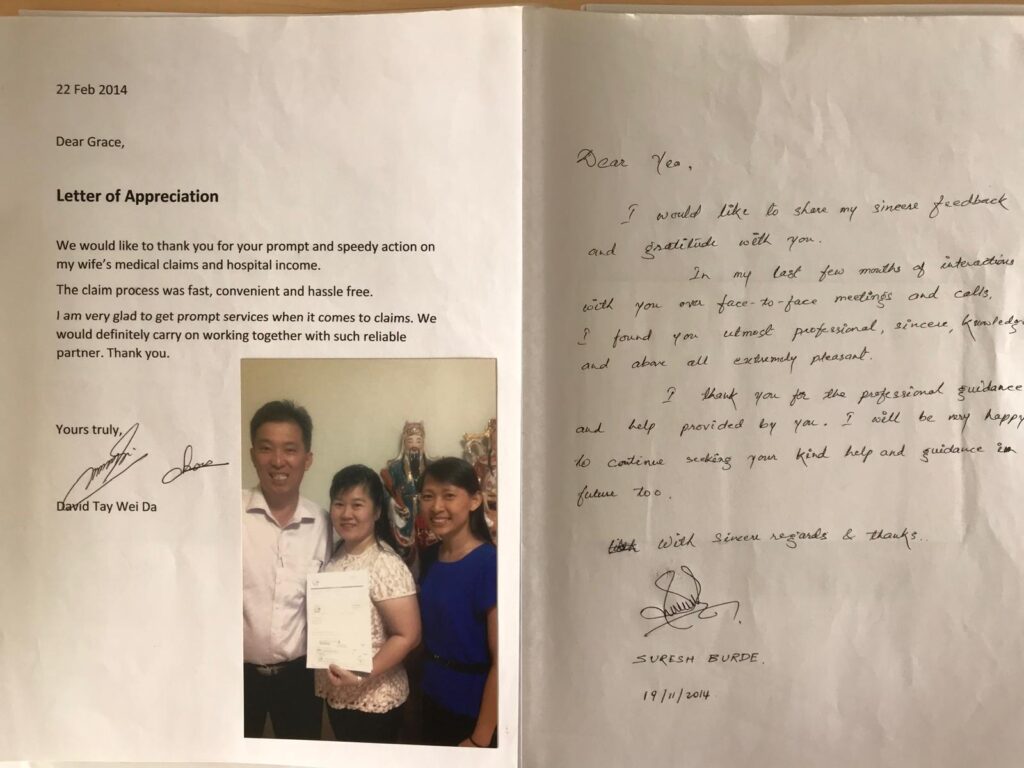 22 Feb 2014
Dear Grace,
Letter of Appreciation
We would like to thank you for your prompt and speedy action on
my wife's medical claims and hospital income.
The claim process was fast, convenient and hassle free.
I am very glad to get prompt services when it comes to claims. We
would definitely carry on working together with such reliable
partner. Thank you.
Yours truly,
David Tay Wei Da
Dear Yeo,
I would like to share my sincere feedback
and gratitude with you.
In my last few months of interactions
with you over face-to-face meetings and calls,
I found you utmost professional, sincere,
and above all extremely pleasant.
I thank you for the professional guidance
and help provided by you. I will be very happy
to continue seeking your kind help and guidance in
future too.
With sincere regards & thanks..
SURESH BURDE.
19/11/2014